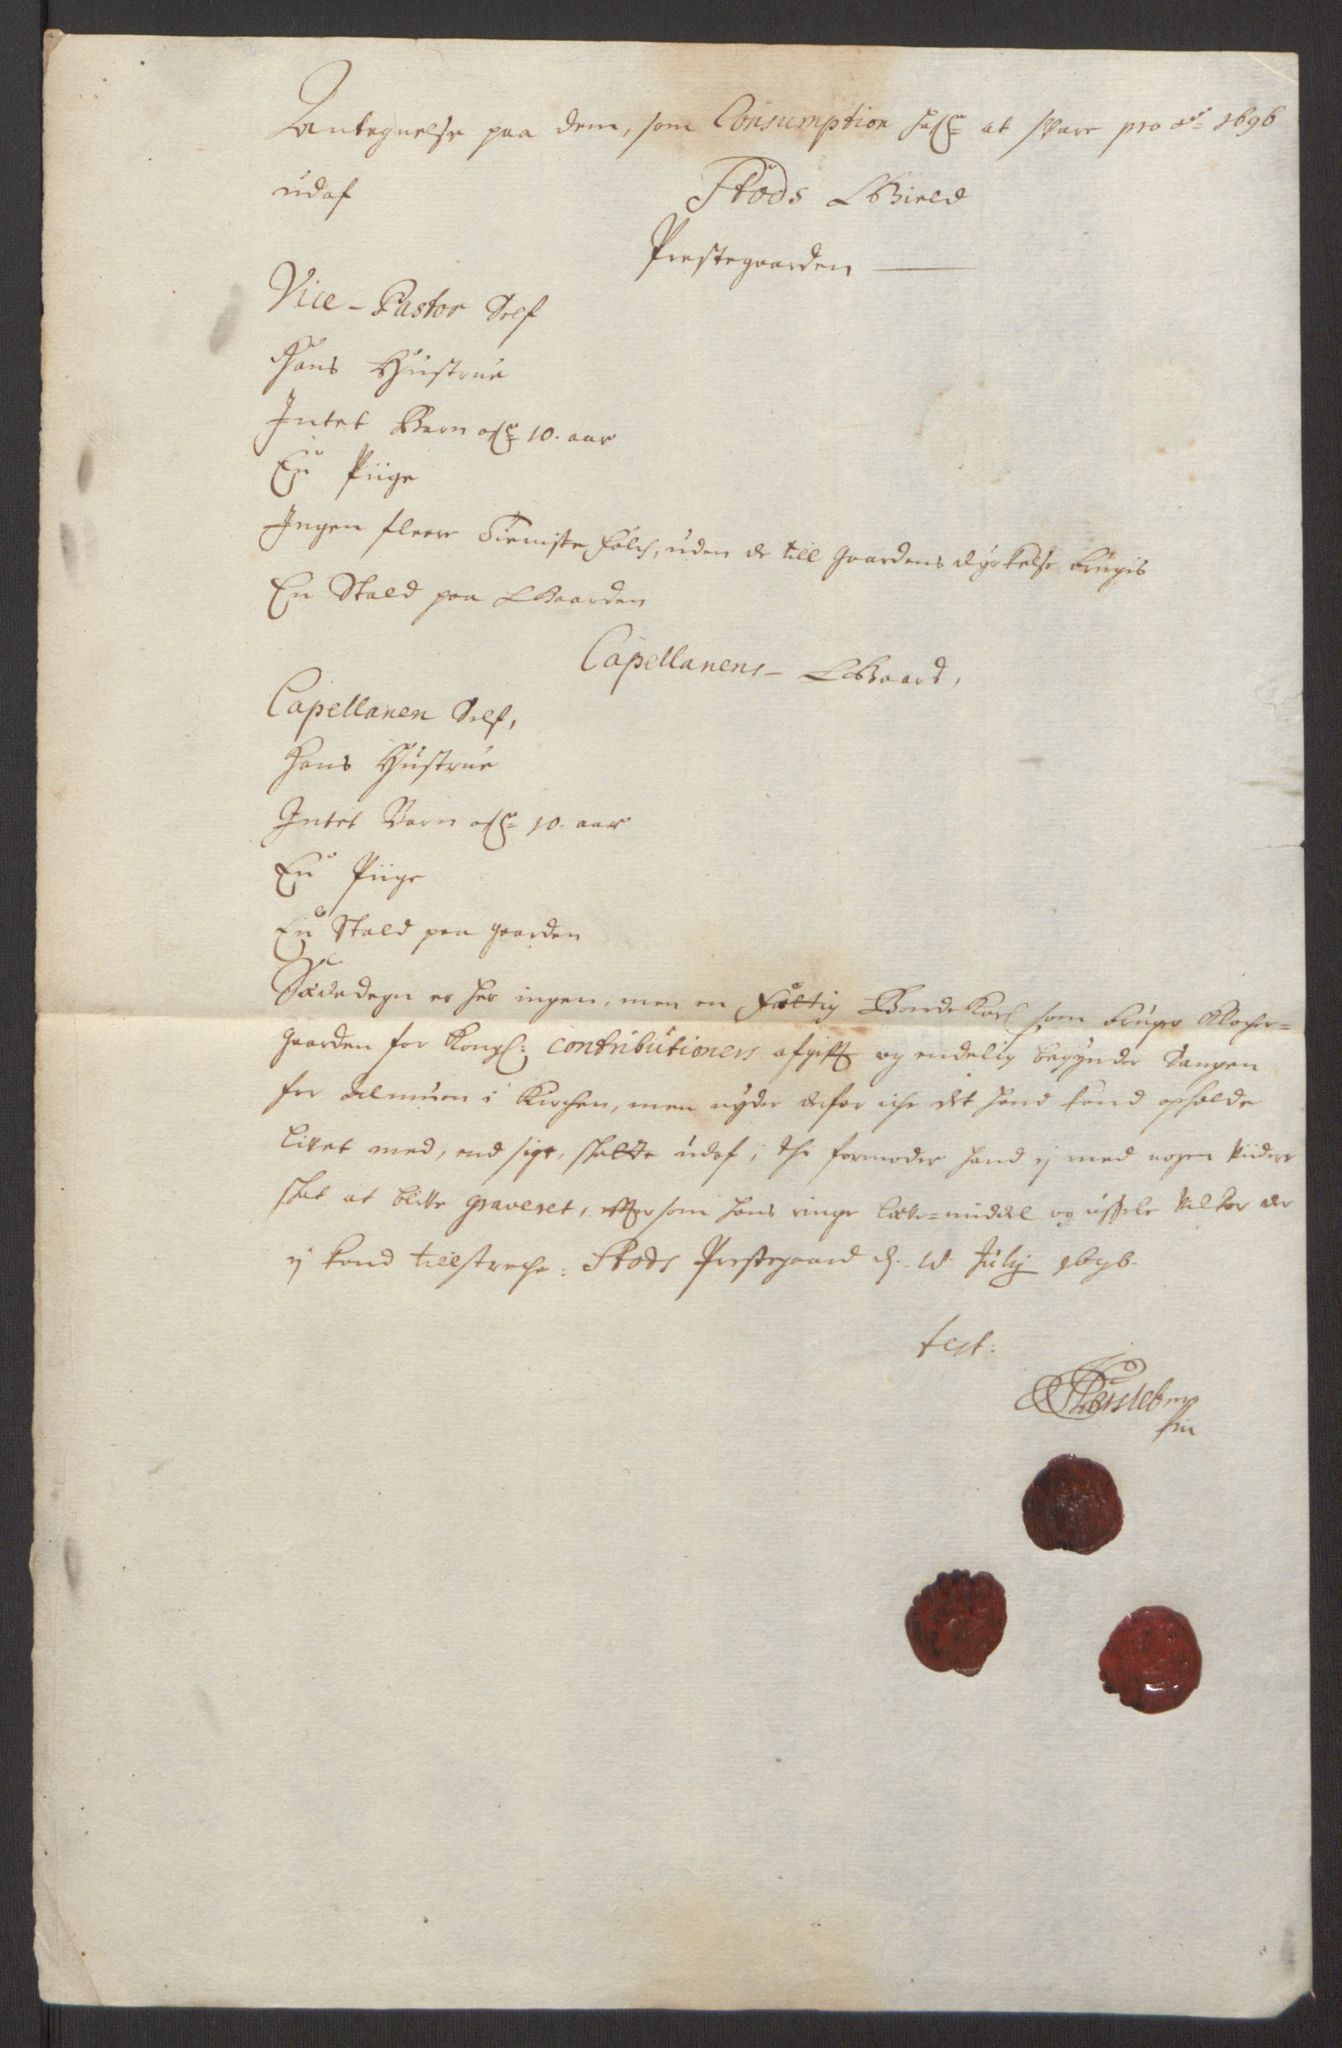 Antegnelse paa dem, som Consumption hafr at svare pro Ao 1696
udaf Stods Gield
Prestegaarden
Vice-Pastor Self
Hans Hustrue
Intet Barn ofr 10. aar
En Piige
Ingen fleere Tieniste folch, uden de till Gaardens dyrkelse brugis
En Stald paa Gaarden
Capellanens Gaard,
Capellanen Self,
Hans Hustrue
Intet Barn ofr 10. aar
En Piige
En Stald paa gaarden
Sædedegn er her ingen, men en fattig Bonde Karl som bruger Klocher-
gaarden for Kongl: contributioners afgifft og endelig begynder Sangen
for Almuen i Kirchen, men nyder derfor iche det hand kand opholde
livet med, end sige, skatte udaf; thi formoder hand ej med nogen viidere
skat at blive graveret, efftersom hans ringe læve-middel og ussele vilkor der
ej kand tillstreche. Stods Prestegaard d. Julij 1696.
test: